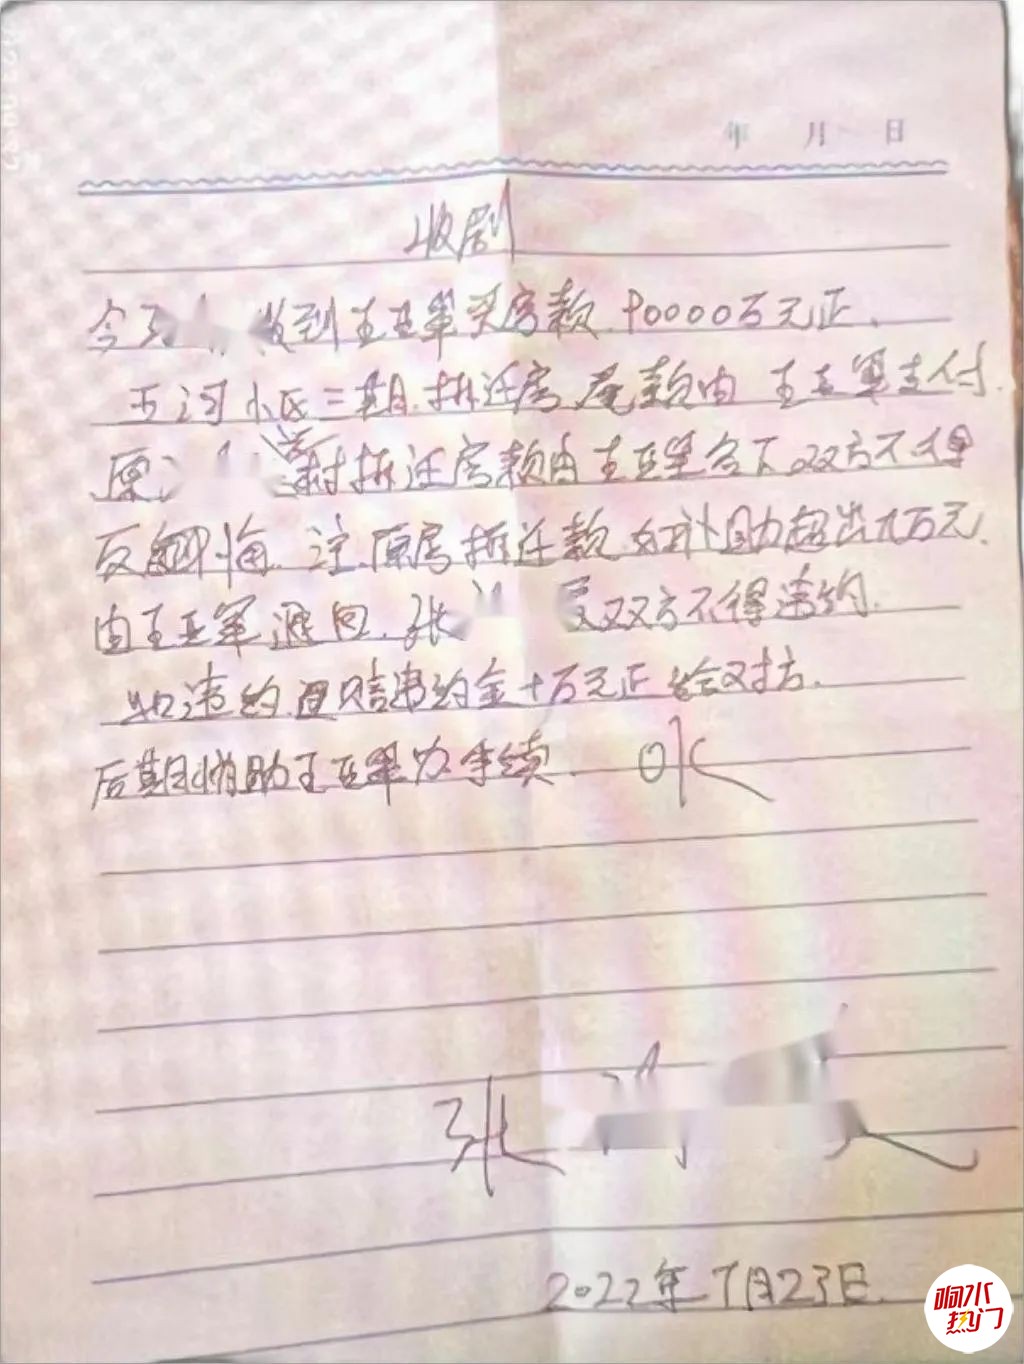 年 月 日
收剧
今 收到王亚军买房款.90000万元正.
五河小区三期.拆迁房尾款由 王亚军支付.
原 村拆迁房款由王亚军名下双方不得
反悔.注.原房拆迁款.如补助超出九万元.
由王亚军退回.张 双方不得违约.
如违约 赔违约金十万元正给对方.
后期协助王亚军办手续.
张
2022年7月23日.
响水热门